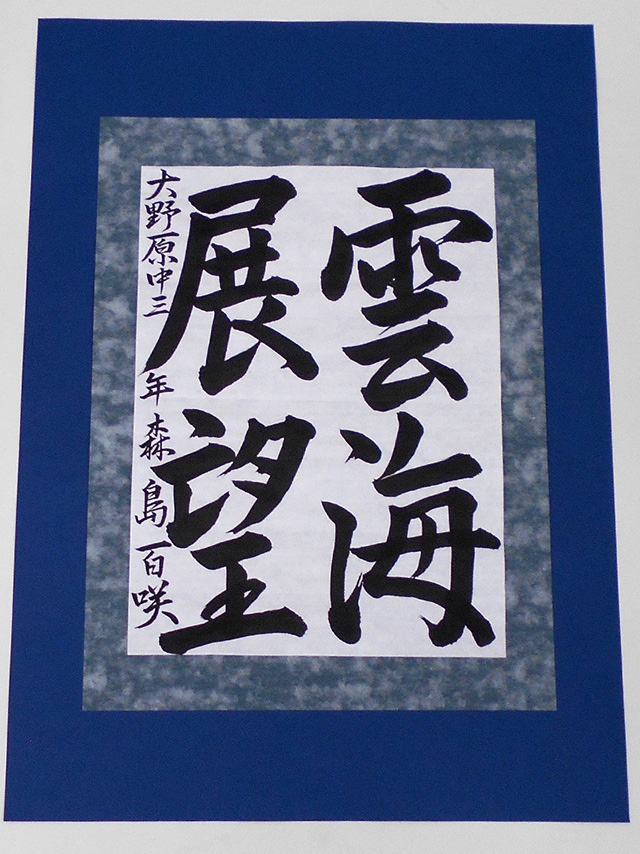 雲海
展望
大野原中三年 森島百咲